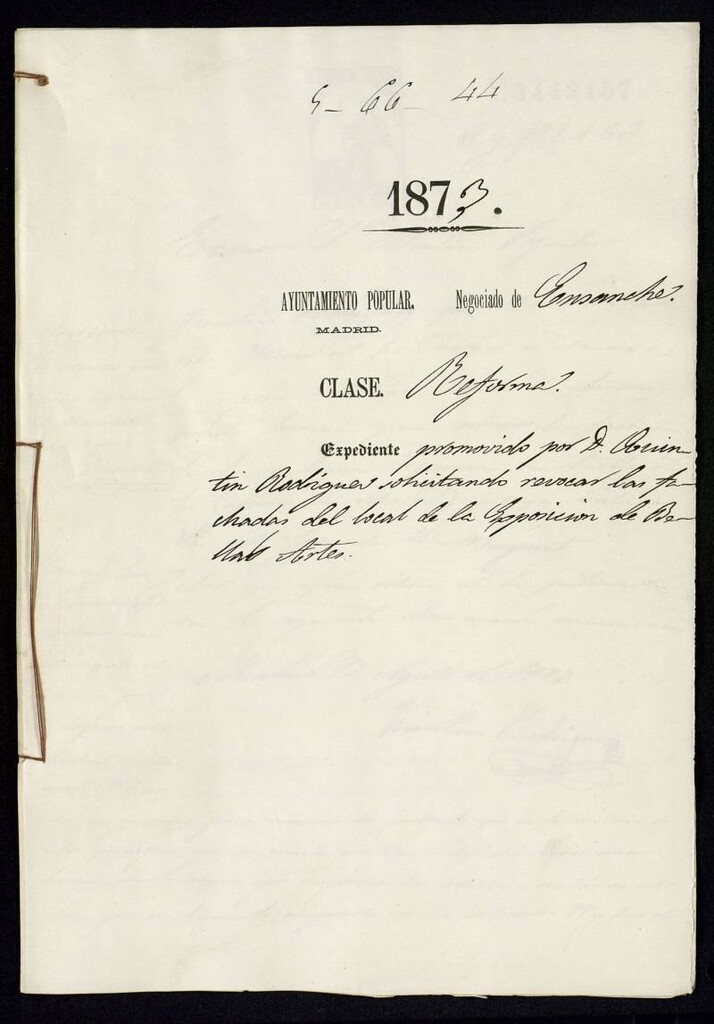 5-66-44
1873.
AYUNTAMIENTO POPULAR. Negociado de Ensanche.
MADRID.
CLASE. Reforma.
Expediente promovido por D. Quin-
tin Rodriguez solicitando revocar las fa-
chadas del local de la Esposicion de Be-
llas Artes.